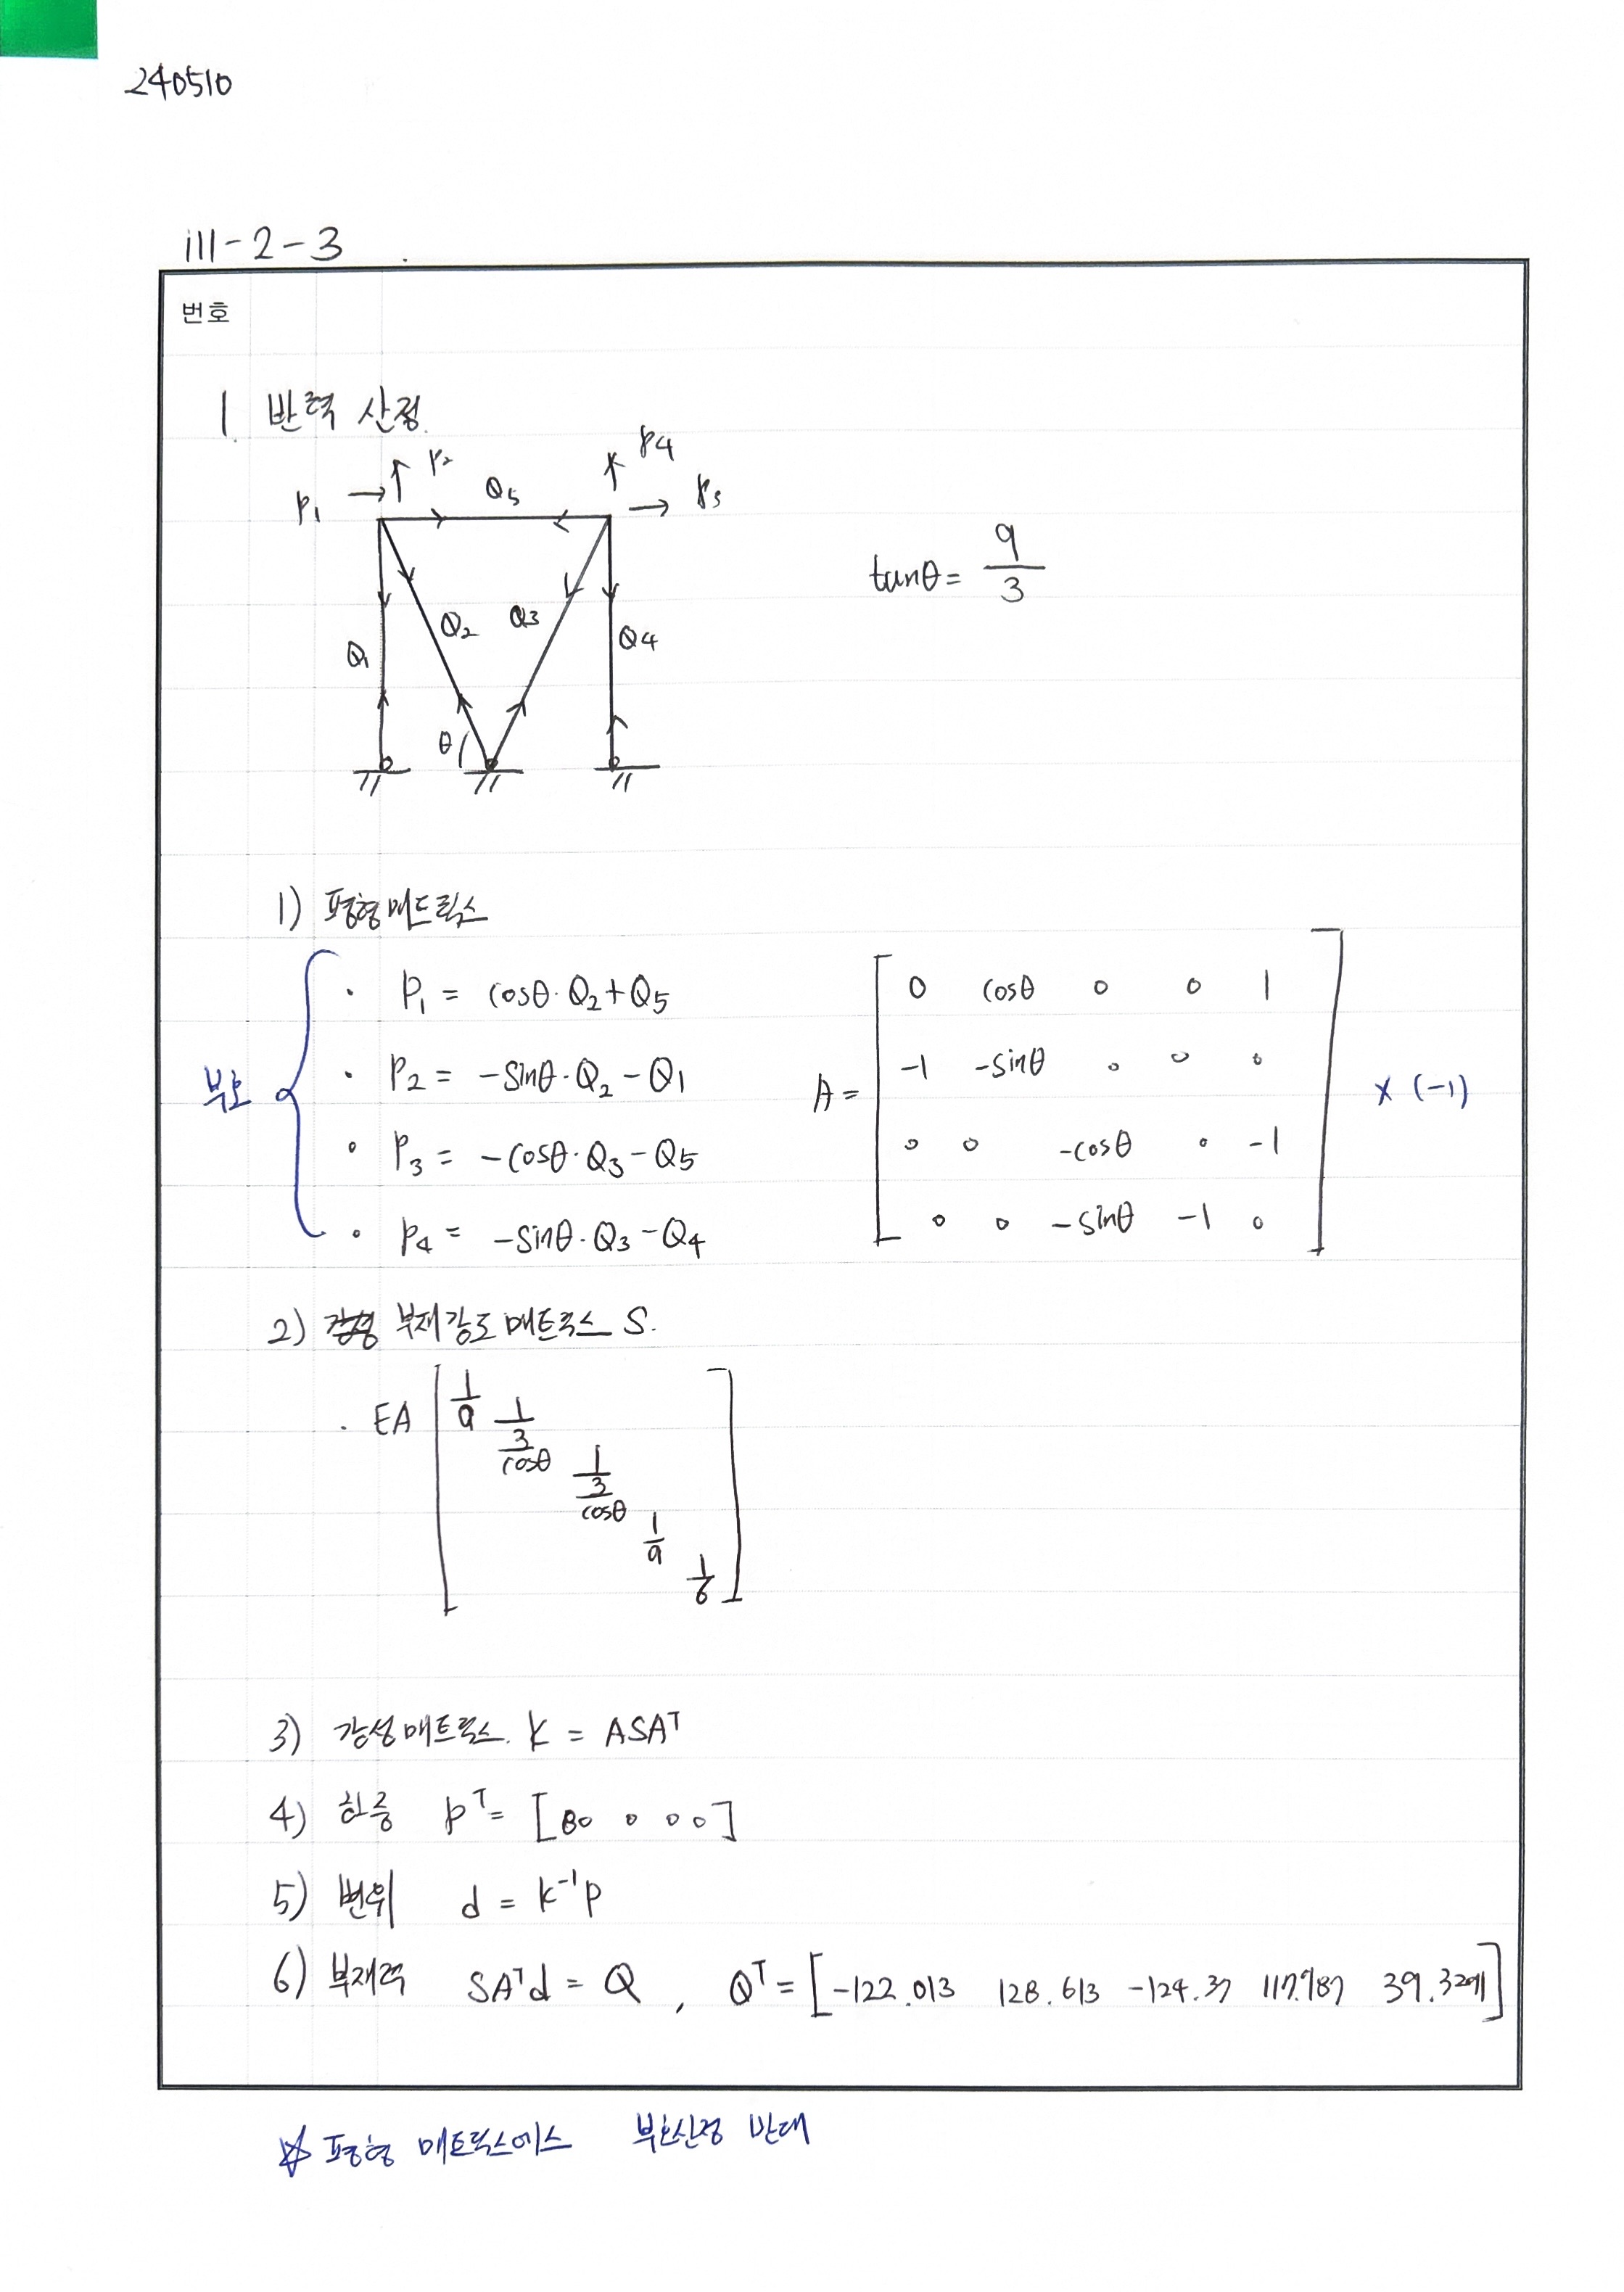 240510
iii-2-3
번호
1. 반력 산정.
P1 → ↑ P2 Q5 ↑ P4 → P3
tanθ = 9/3
Q1 Q2 Q3 Q4
θ
1) 평형매트릭스
부호
· P1 = cosθ·Q2+Q5
· P2 = -sinθ·Q2-Q1
· P3 = -cosθ·Q3-Q5
· P4 = -sinθ·Q3-Q4
A = [
0 cosθ 0 0 1
-1 -sinθ 0 0 0
0 0 -cosθ 0 -1
0 0 -sinθ -1 0
] × (-1)
2) 부재강도 매트릭스 S.
· EA [ 1/9 1/(3/cosθ) 1/(3/cosθ) 1/9 1/6 ]
3) 강성매트릭스. K = ASAᵀ
4) 하중 Pᵀ= [80 0 0 0]
5) 변위 d = K⁻¹P
6) 부재력 SAᵀd = Q , Qᵀ = [-122.013 128.613 -124.37 117.987 39.329]
☆ 평형 매트릭스에스 부호산정 반대